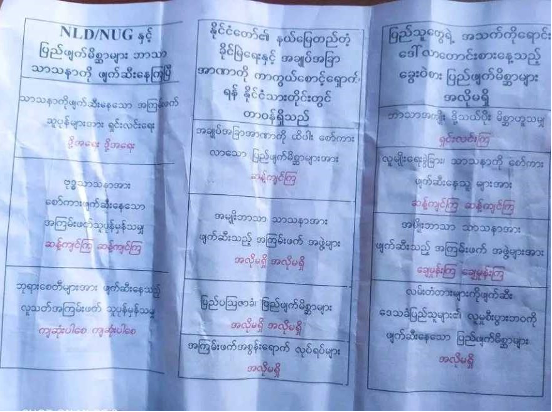 NLD/NUG နှင့်
ပြည်ဖျက်မိစ္ဆာများ ဘာသာ
သာသနာကို ဖျက်ဆီးနေကြပြီ
သာသနာကိုဖျက်ဆီးနေသော အကြမ်းဖက်
သူပုန်များအား ရှင်းလင်းရေး
ဒို့အရေး ဒို့အရေး
ဗုဒ္ဓသာသနာအား
စော်ကားဖျက်ဆီးနေသော
အကြမ်းဖက်သူပုန်မှန်သမျှ
ဆန့်ကျင်ကြ ဆန့်ကျင်ကြ
ဘုရားစေတီများအား ဖျက်ဆီးနေသည့်
လူသတ်အကြမ်းဖက် သူပုန်မှန်သမျှ
ကျဆုံးပါစေ ကျဆုံးပါစေ
နိုင်ငံတော်၏ နယ်မြေတည်တံ့
ခိုင်မြဲရေးနှင့် အချုပ်အခြာ
အာဏာကို ကာကွယ်စောင့်ရှောက်
ရန် နိုင်ငံသားတိုင်းတွင်
တာဝန်ရှိသည်
အချုပ်အခြာအာဏာကို ထိပါး စော်ကား
လာသော ပြည်ဖျက်မိစ္ဆာများအား
ဆန့်ကျင်ကြ
အမျိုးဘာသာ သာသနာအား
ဖျက်ဆီးသည့် အကြမ်းဖက် အဖွဲ့များ
အလိုမရှိ အလိုမရှိ
ပြည်ပသြဇာခံ ပြည်ဖျက်မိစ္ဆာများ
အလိုမရှိ အလိုမရှိ
အကြမ်းဖက်အစွန်းရောက် လုပ်ရပ်များ
အလိုမရှိ
ပြည်သူတွေရဲ့ အသက်ကိုရောင်း
ဒေါ်လာတောင်းစားနေသည့်
ခွေးဝဲစား ပြည်ဖျက်မိစ္ဆာများ
အလိုမရှိ
ဘာသာအကျိုး ဒို့သယ်ပိုး မိစ္ဆာဟူသမျှ
ရှင်းလင်းကြ
လူမျိုးရေးခွဲခြား သာသနာကို စော်ကား
ဖျက်ဆီးနေသူ များအား
ဆန့်ကျင်ကြ ဆန့်ကျင်ကြ
အမျိုးဘာသာ သာသနာအား
ဖျက်ဆီးသည့် အကြမ်းဖက် အဖွဲ့များအား
ချေမှုန်းကြ ချေမှုန်းကြ
လမ်းတံတားများကိုဖျက်ဆီး
ဒေသခံပြည်သူများ၏ လူမှုစီးပွားဘဝကို
ဖျက်ဆီးနေသော ပြည်ဖျက်မိစ္ဆာများ
အလိုမရှိ